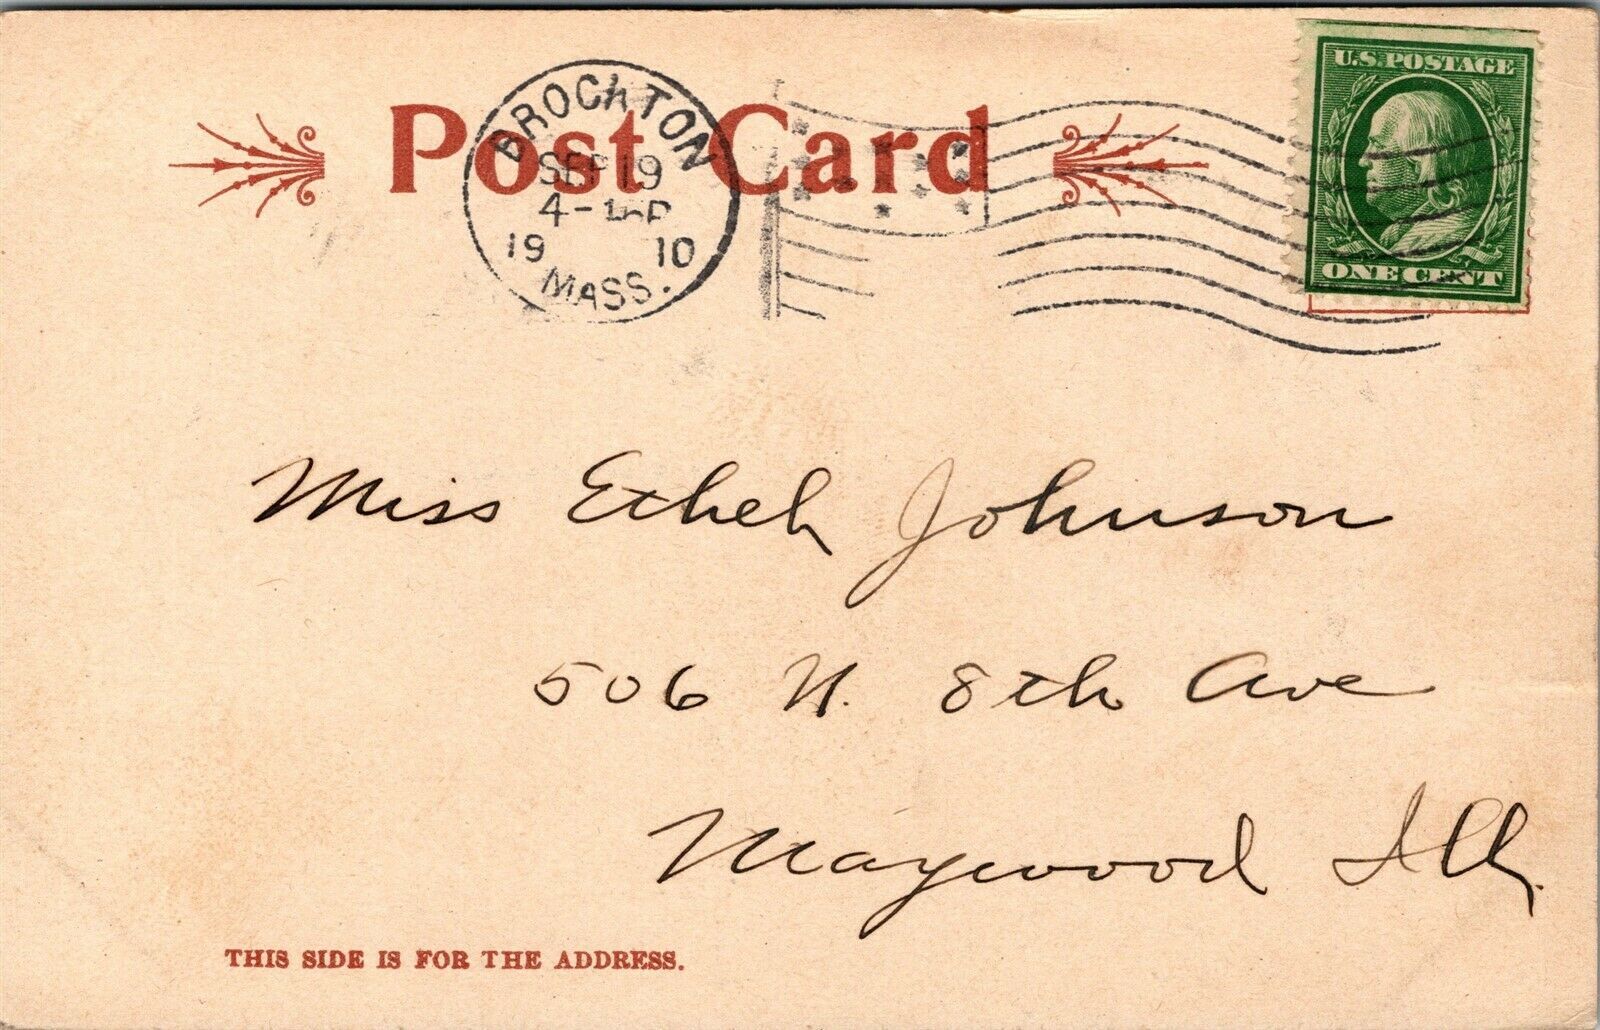 Post Card
BROCKTON
SEP 19
4-
19 10
MASS.
U.S. POSTAGE
ONE CENT
Miss Ethel Johnson
506 N. 8th Ave
Maywood Ill.
THIS SIDE IS FOR THE ADDRESS.